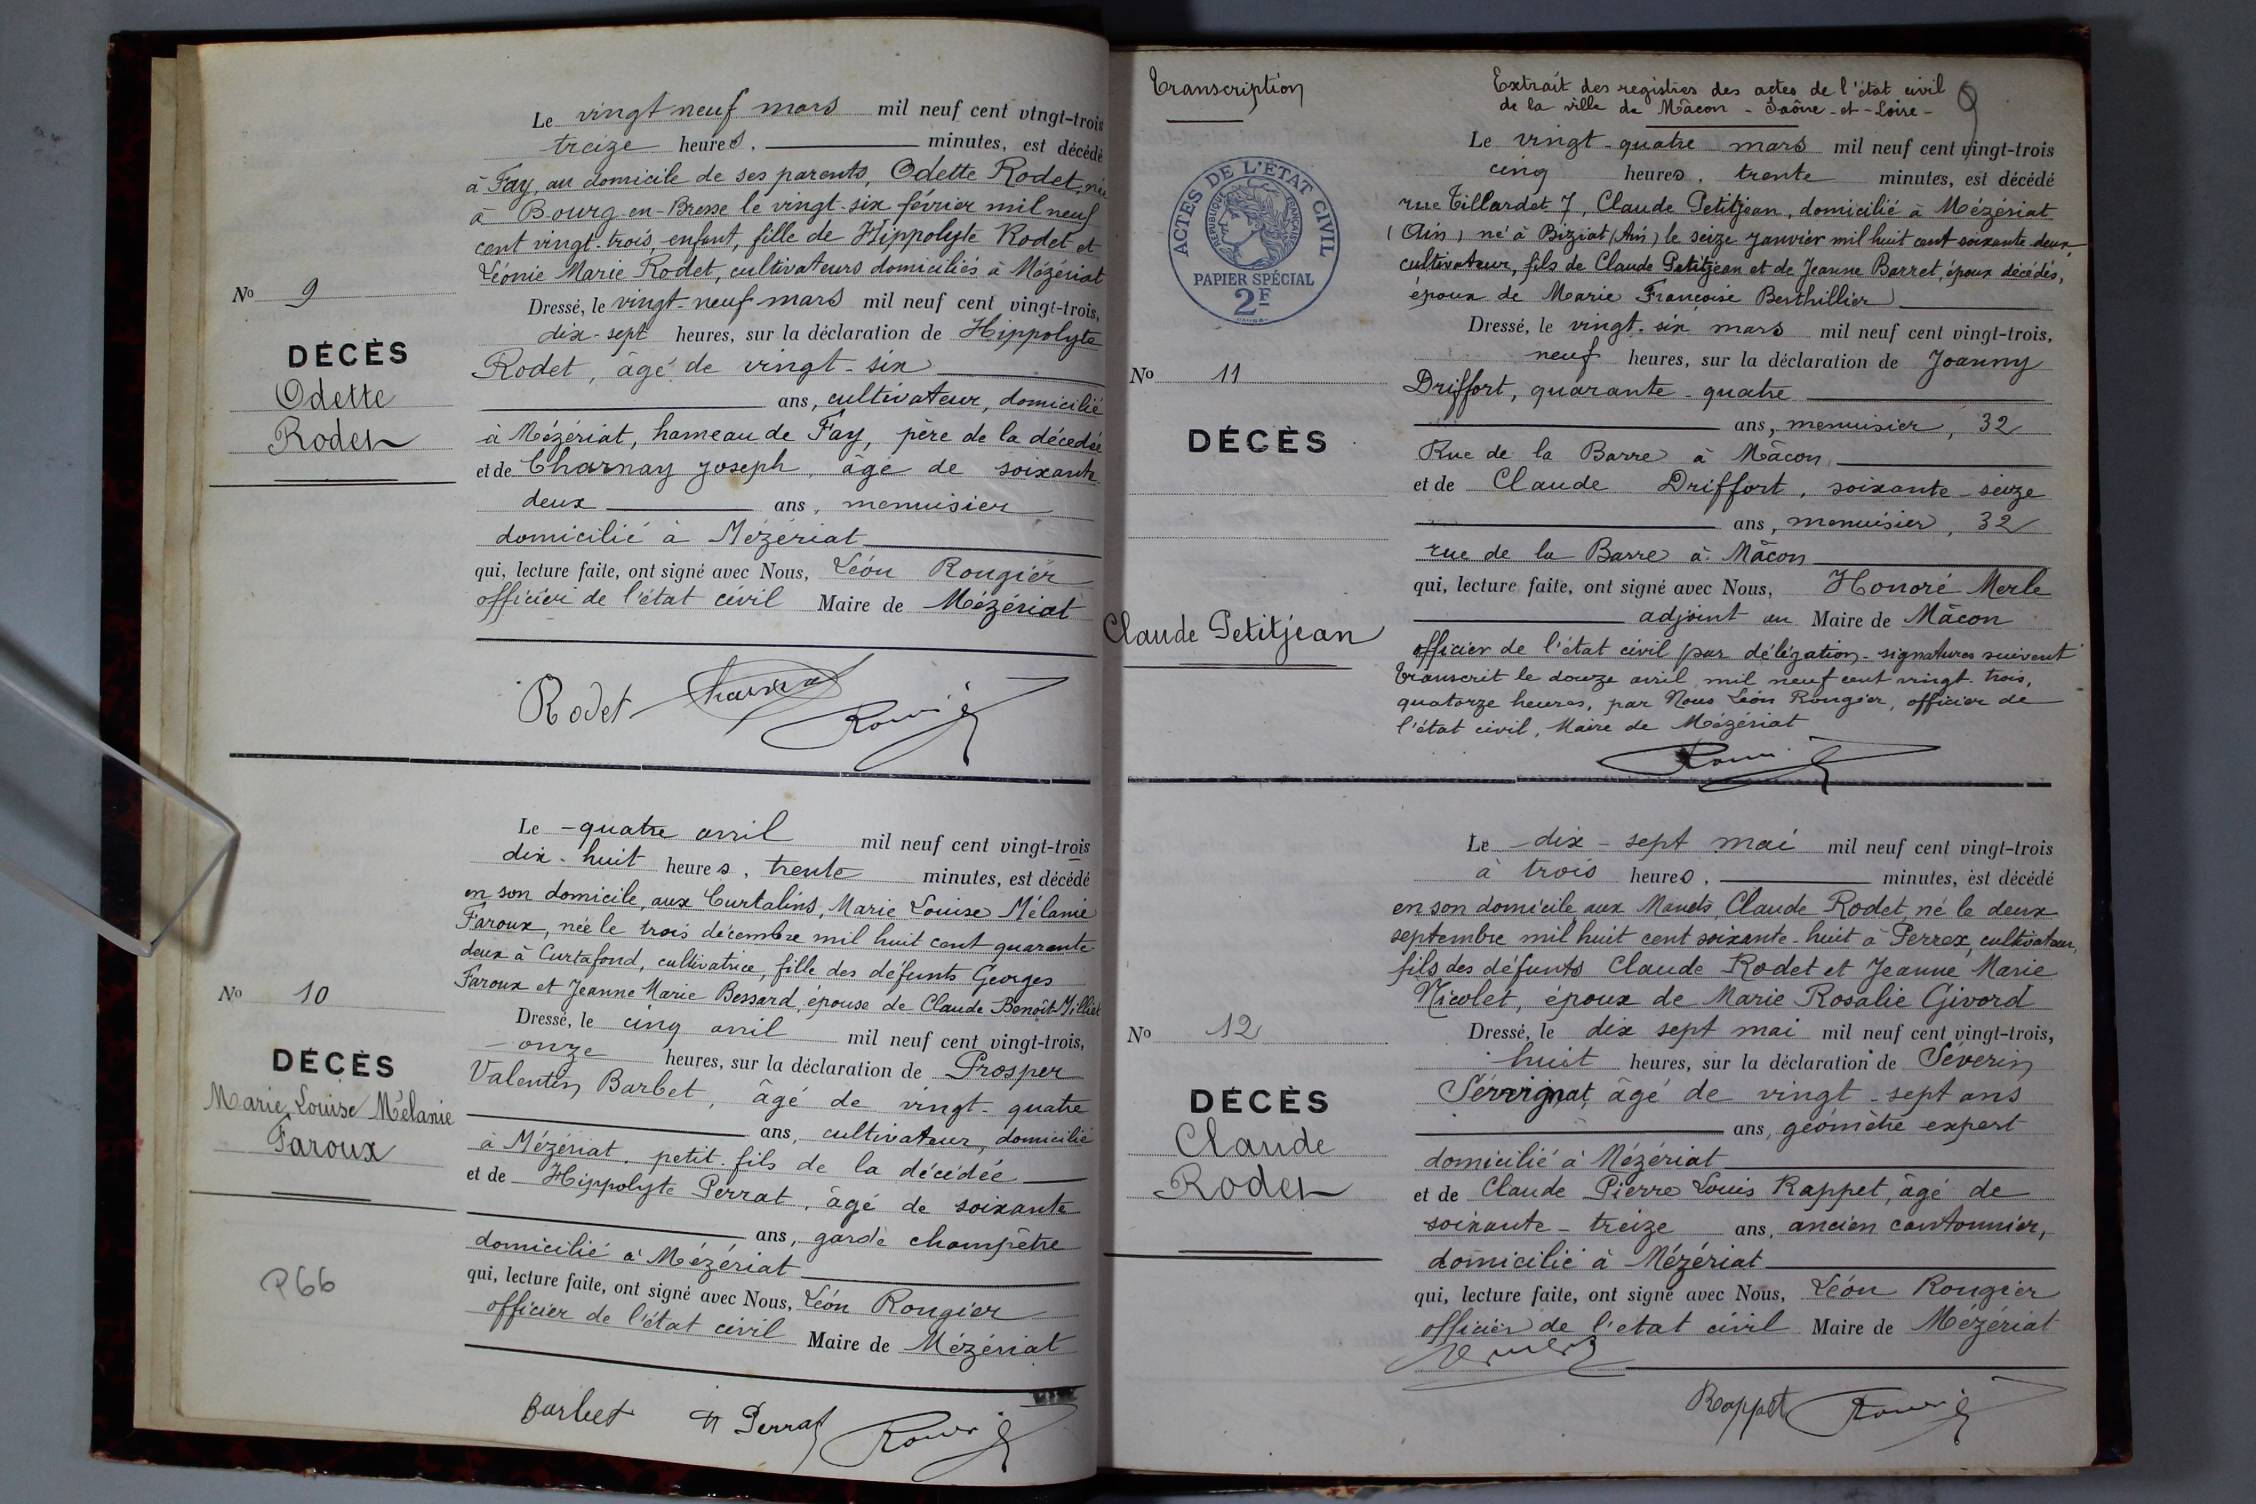 Le vingt neuf mars mil neuf cent vingt-trois
treize heures, minutes, est décédé
à Fay, au domicile de ses parents, Odette Rodet, née
à Bourg-en-Bresse le vingt-six février mil neuf
cent vingt-trois, enfant, fille de Hippolyte Rodet et
Léonie Marie Rodet, cultivateurs domiciliés à Mézériat
No 9
DÉCÈS
Odette
Rodet
Dressé, le vingt-neuf mars mil neuf cent vingt-trois,
dix-sept heures, sur la déclaration de Hippolyte
Rodet, âgé de vingt-six
ans, cultivateur, domicilié
à Mézériat, hameau de Fay, père de la décédée
et de Charnay Joseph, âgé de soixante
deux ans, menuisier
domicilié à Mézériat
qui, lecture faite, ont signé avec Nous, Léon Rougier
officier de l'état civil Maire de Mézériat
Rodet
Le quatre avril mil neuf cent vingt-trois
dix-huit heures, trente minutes, est décédé
en son domicile, aux Curtalins, Marie Louise Mélanie
Faroux, née le trois décembre mil huit cent quarante
deux à Curtafond, cultivatrice, fille des défunts Georges
Faroux et Jeanne Marie Bessard, épouse de Claude Benoît Milliat
No 10
DÉCÈS
Marie Louise Mélanie
Faroux
P66
Dressé, le cinq avril mil neuf cent vingt-trois,
onze heures, sur la déclaration de Prosper
Valentin Barbet, âgé de vingt-quatre
ans, cultivateur, domicilié
à Mézériat, petit-fils de la décédée
et de Hippolyte Perrat, âgé de soixante
ans, garde champêtre
domicilié à Mézériat
qui, lecture faite, ont signé avec Nous, Léon Rougier
officier de l'état civil Maire de Mézériat
Barbet H Perrat
Transcription
Extrait des registres des actes de l'état civil
de la ville de Mâcon - Saône-et-Loire -
9
ACTES DE L'ÉTAT CIVIL
RÉPUBLIQUE FRANÇAISE
PAPIER SPÉCIAL
2F
Le vingt-quatre mars mil neuf cent vingt-trois
cinq heures, trente minutes, est décédé
rue Tillardet 7, Claude Petitjean, domicilié à Mézériat
(Ain) né à Biziat (Ain) le seize janvier mil huit cent soixante deux
cultivateur, fils de Claude Petitjean et de Jeanne Barret, époux décédés,
époux de Marie Françoise Berthillier
No 11
DÉCÈS
Claude Petitjean
Dressé, le vingt-six mars mil neuf cent vingt-trois,
neuf heures, sur la déclaration de Joanny
Driffort, quarante-quatre
ans, menuisier, 32
Rue de la Barre à Mâcon,
et de Claude Driffort, soixante-seize
ans, menuisier, 32
rue de la Barre à Mâcon
qui, lecture faite, ont signé avec Nous, Honoré Merle
adjoint au Maire de Mâcon
officier de l'état civil par délégation - signatures suivent
Transcrit le douze avril mil neuf cent vingt-trois,
quatorze heures, par Nous Léon Rougier, officier de
l'état civil, Maire de Mézériat
Le dix-sept mai mil neuf cent vingt-trois
à trois heures, minutes, est décédé
en son domicile aux Manets, Claude Rodet, né le deux
septembre mil huit cent soixante-huit à Perrex, cultivateur,
fils des défunts Claude Rodet et Jeanne Marie
Nicolet, époux de Marie Rosalie Givord
No 12
DÉCÈS
Claude
Rodet
Dressé, le dix sept mai mil neuf cent vingt-trois,
huit heures, sur la déclaration de Séverin
Servignat, âgé de vingt-sept ans
ans, géomètre expert
domicilié à Mézériat
et de Claude Pierre Louis Rappet, âgé de
soixante-treize ans, ancien cantonnier,
domicilié à Mézériat
qui, lecture faite, ont signé avec Nous, Léon Rougier
officier de l'état civil Maire de Mézériat
Rappet